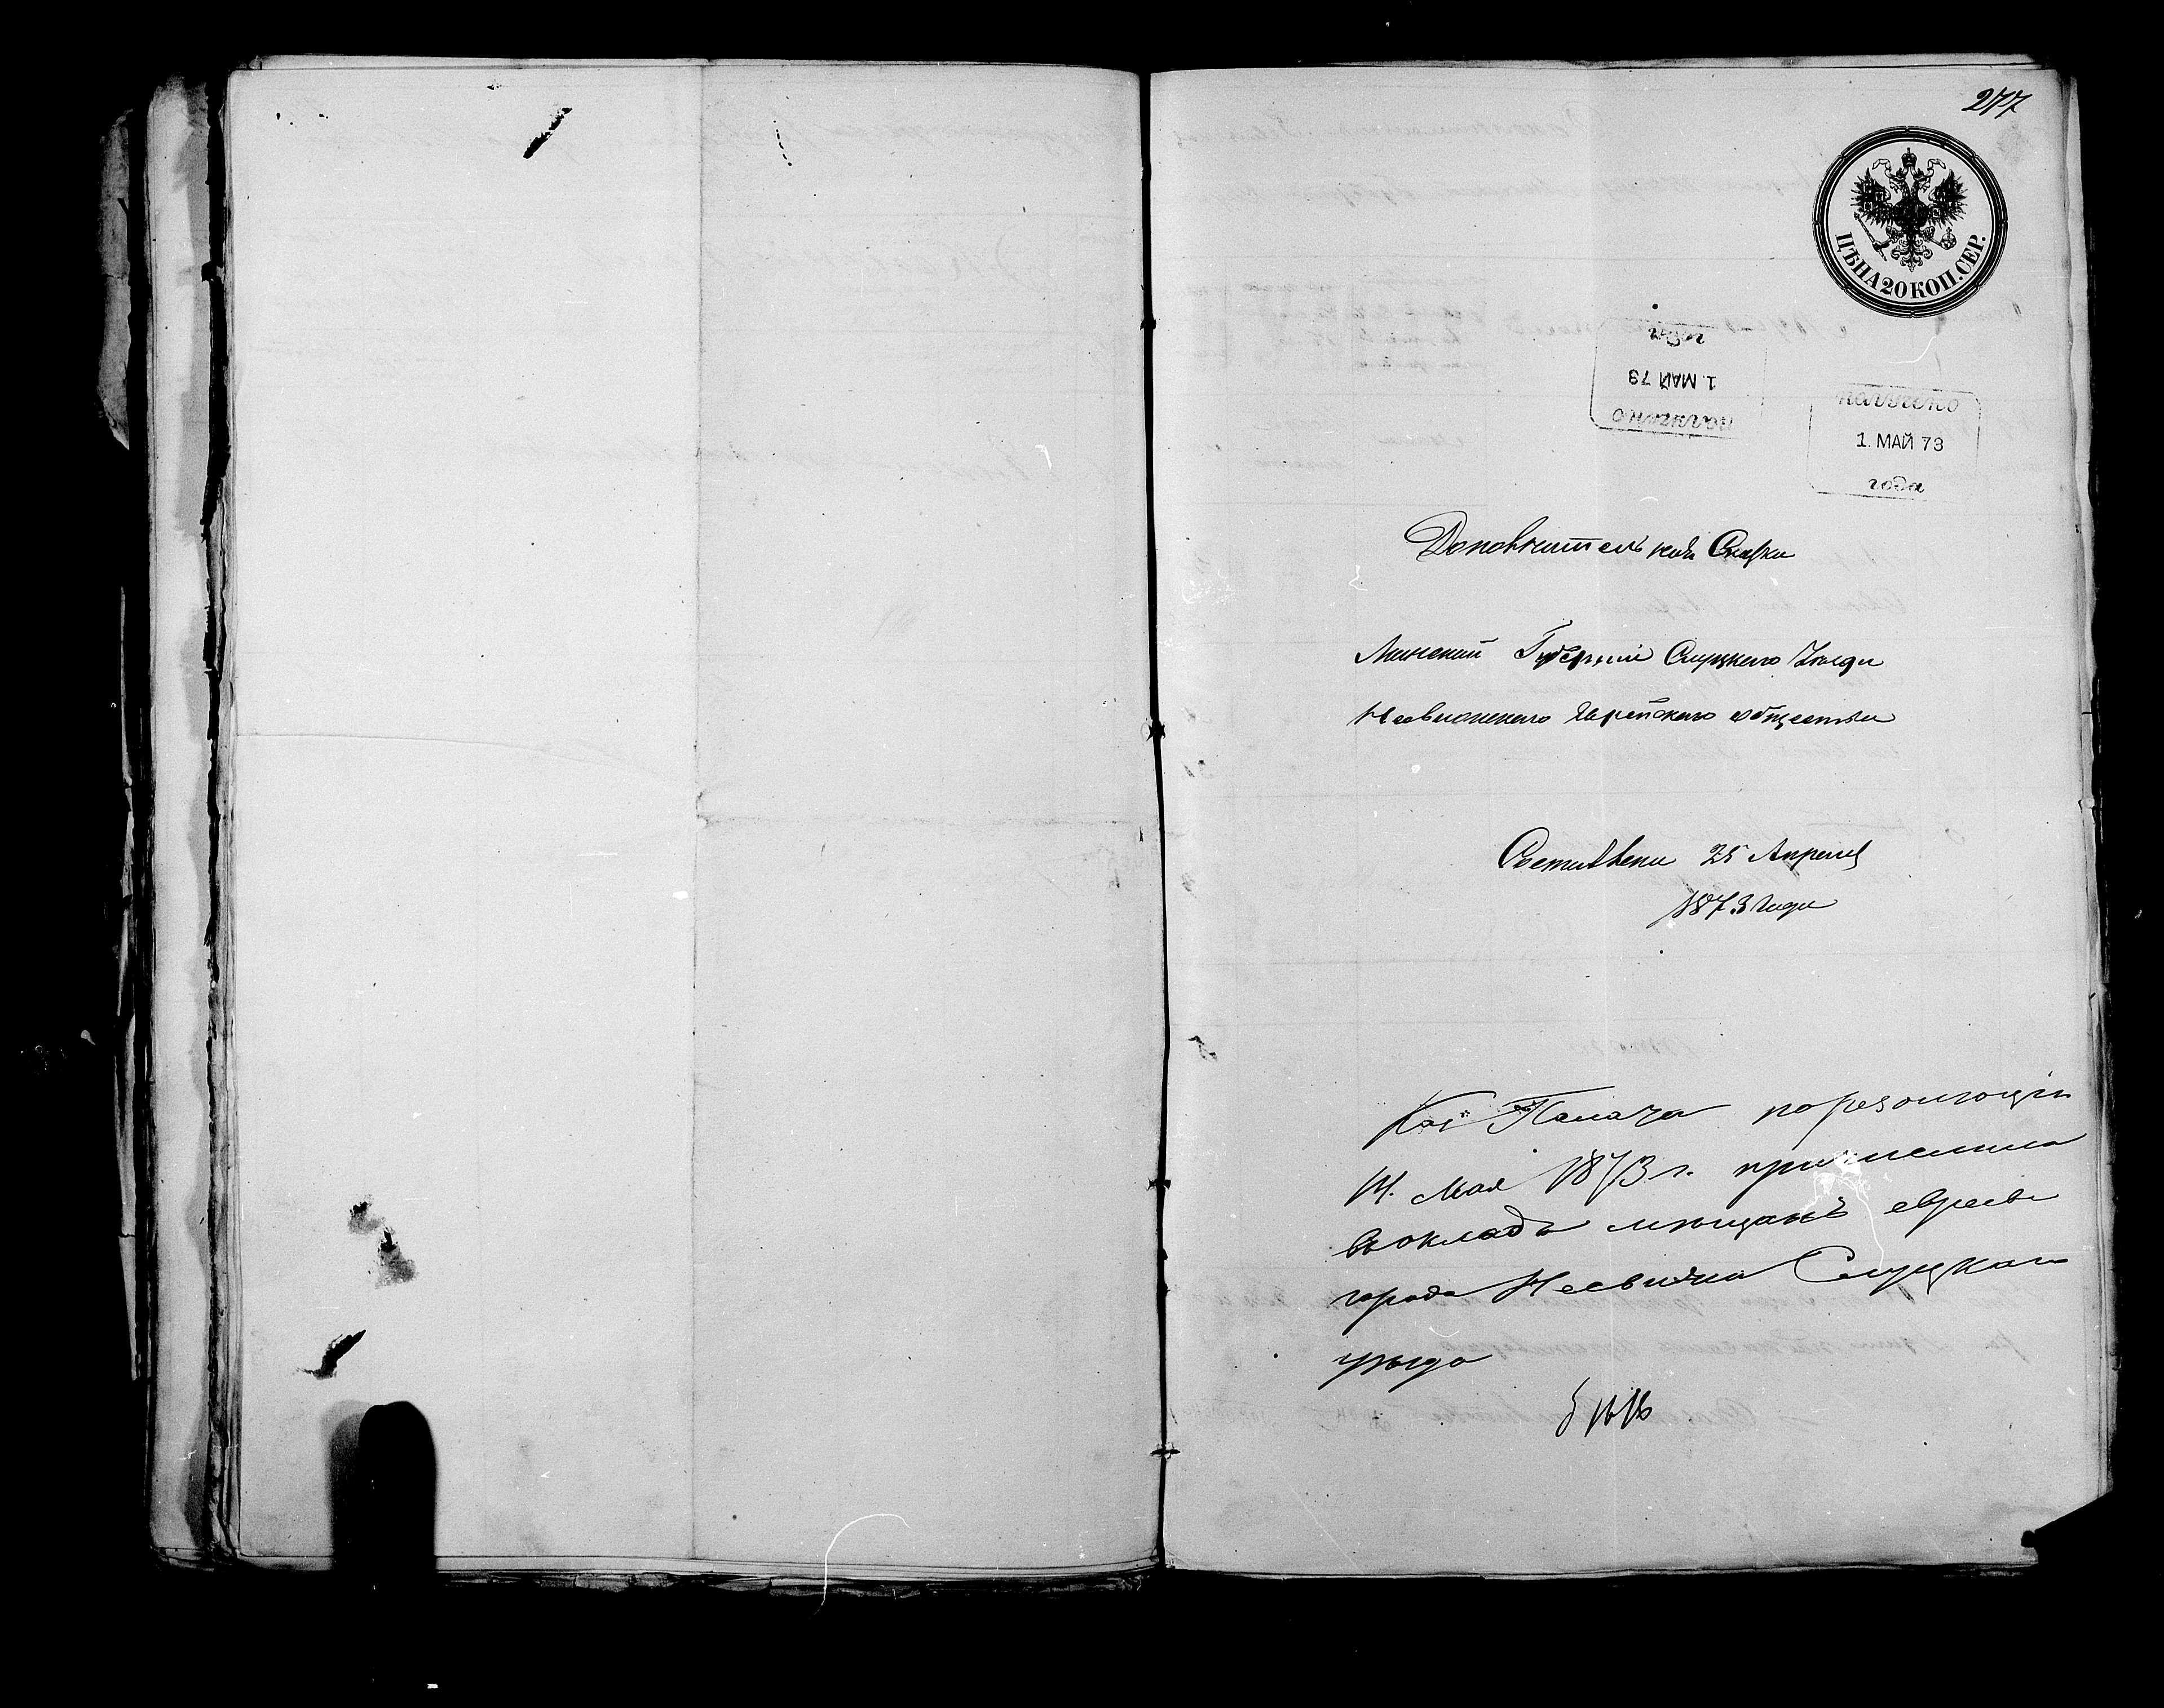 277
ЦѢНА 20 КОП. СЕР.
получено
1. МАЙ 73
года
получено
1. МАЙ 73
года
Дополнительная Сказка
Минской Губерніи Слуцкого Уѣзда
Несвижского Еврейского общества
Составлена 25 Апреля
1873 года
Каз Палата по резолюціи
14 Мая 1873 г. причислила
въ окладъ мѣщанъ евреевъ
города Несвижа Слуцкаго
уѣзда